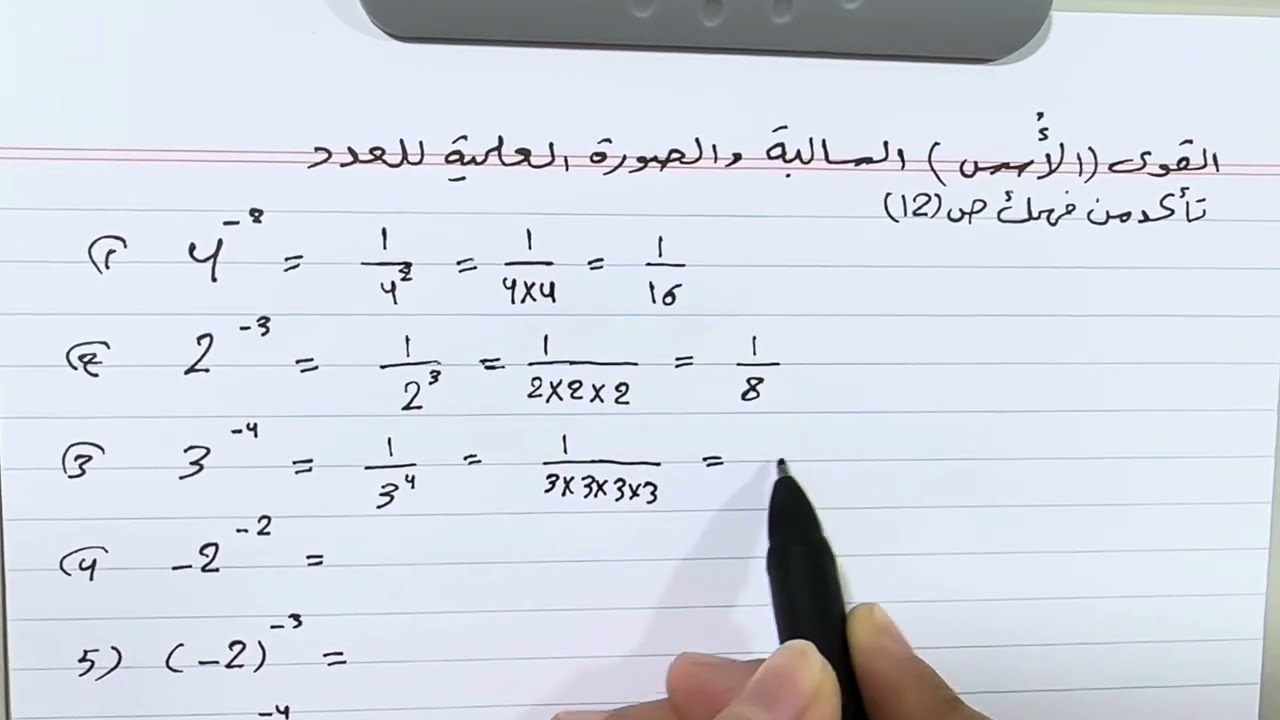 القوى (الأُسس) السالبة والصورة العلمية للعدد
تأكد من فهمك ص (12)
1) 4⁻² = 1/4² = 1/4×4 = 1/16
2) 2⁻³ = 1/2³ = 1/2×2×2 = 1/8
3) 3⁻⁴ = 1/3⁴ = 1/3×3×3×3 =
4) -2⁻² =
5) (-2)⁻³ =
-4